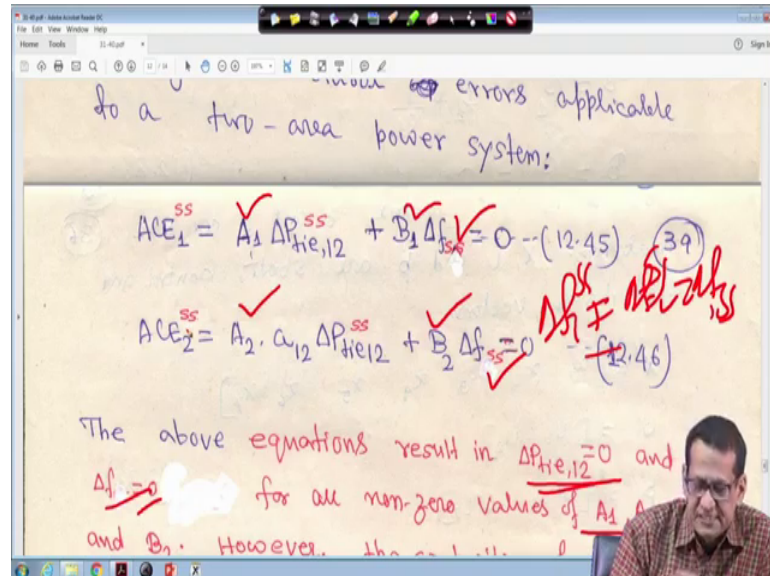 31-40.pdf - Adobe Acrobat Reader DC
File Edit View Window Help
Home Tools 31-40.pdf × Sign I
errors applicable
to a two-area power system:
ACE₁^ss = A₁ ΔP_tie,12^ss + B₁ Δf_ss = 0 --(12.45) 39
ACE₂^ss = A₂. a₁₂ ΔP_tie12^ss + B₂ Δf_ss = 0 (12.46)
The above equations result in ΔP_tie,12 =0 and
Δf =0 for all non-zero values of A₁
and B₂. However, the